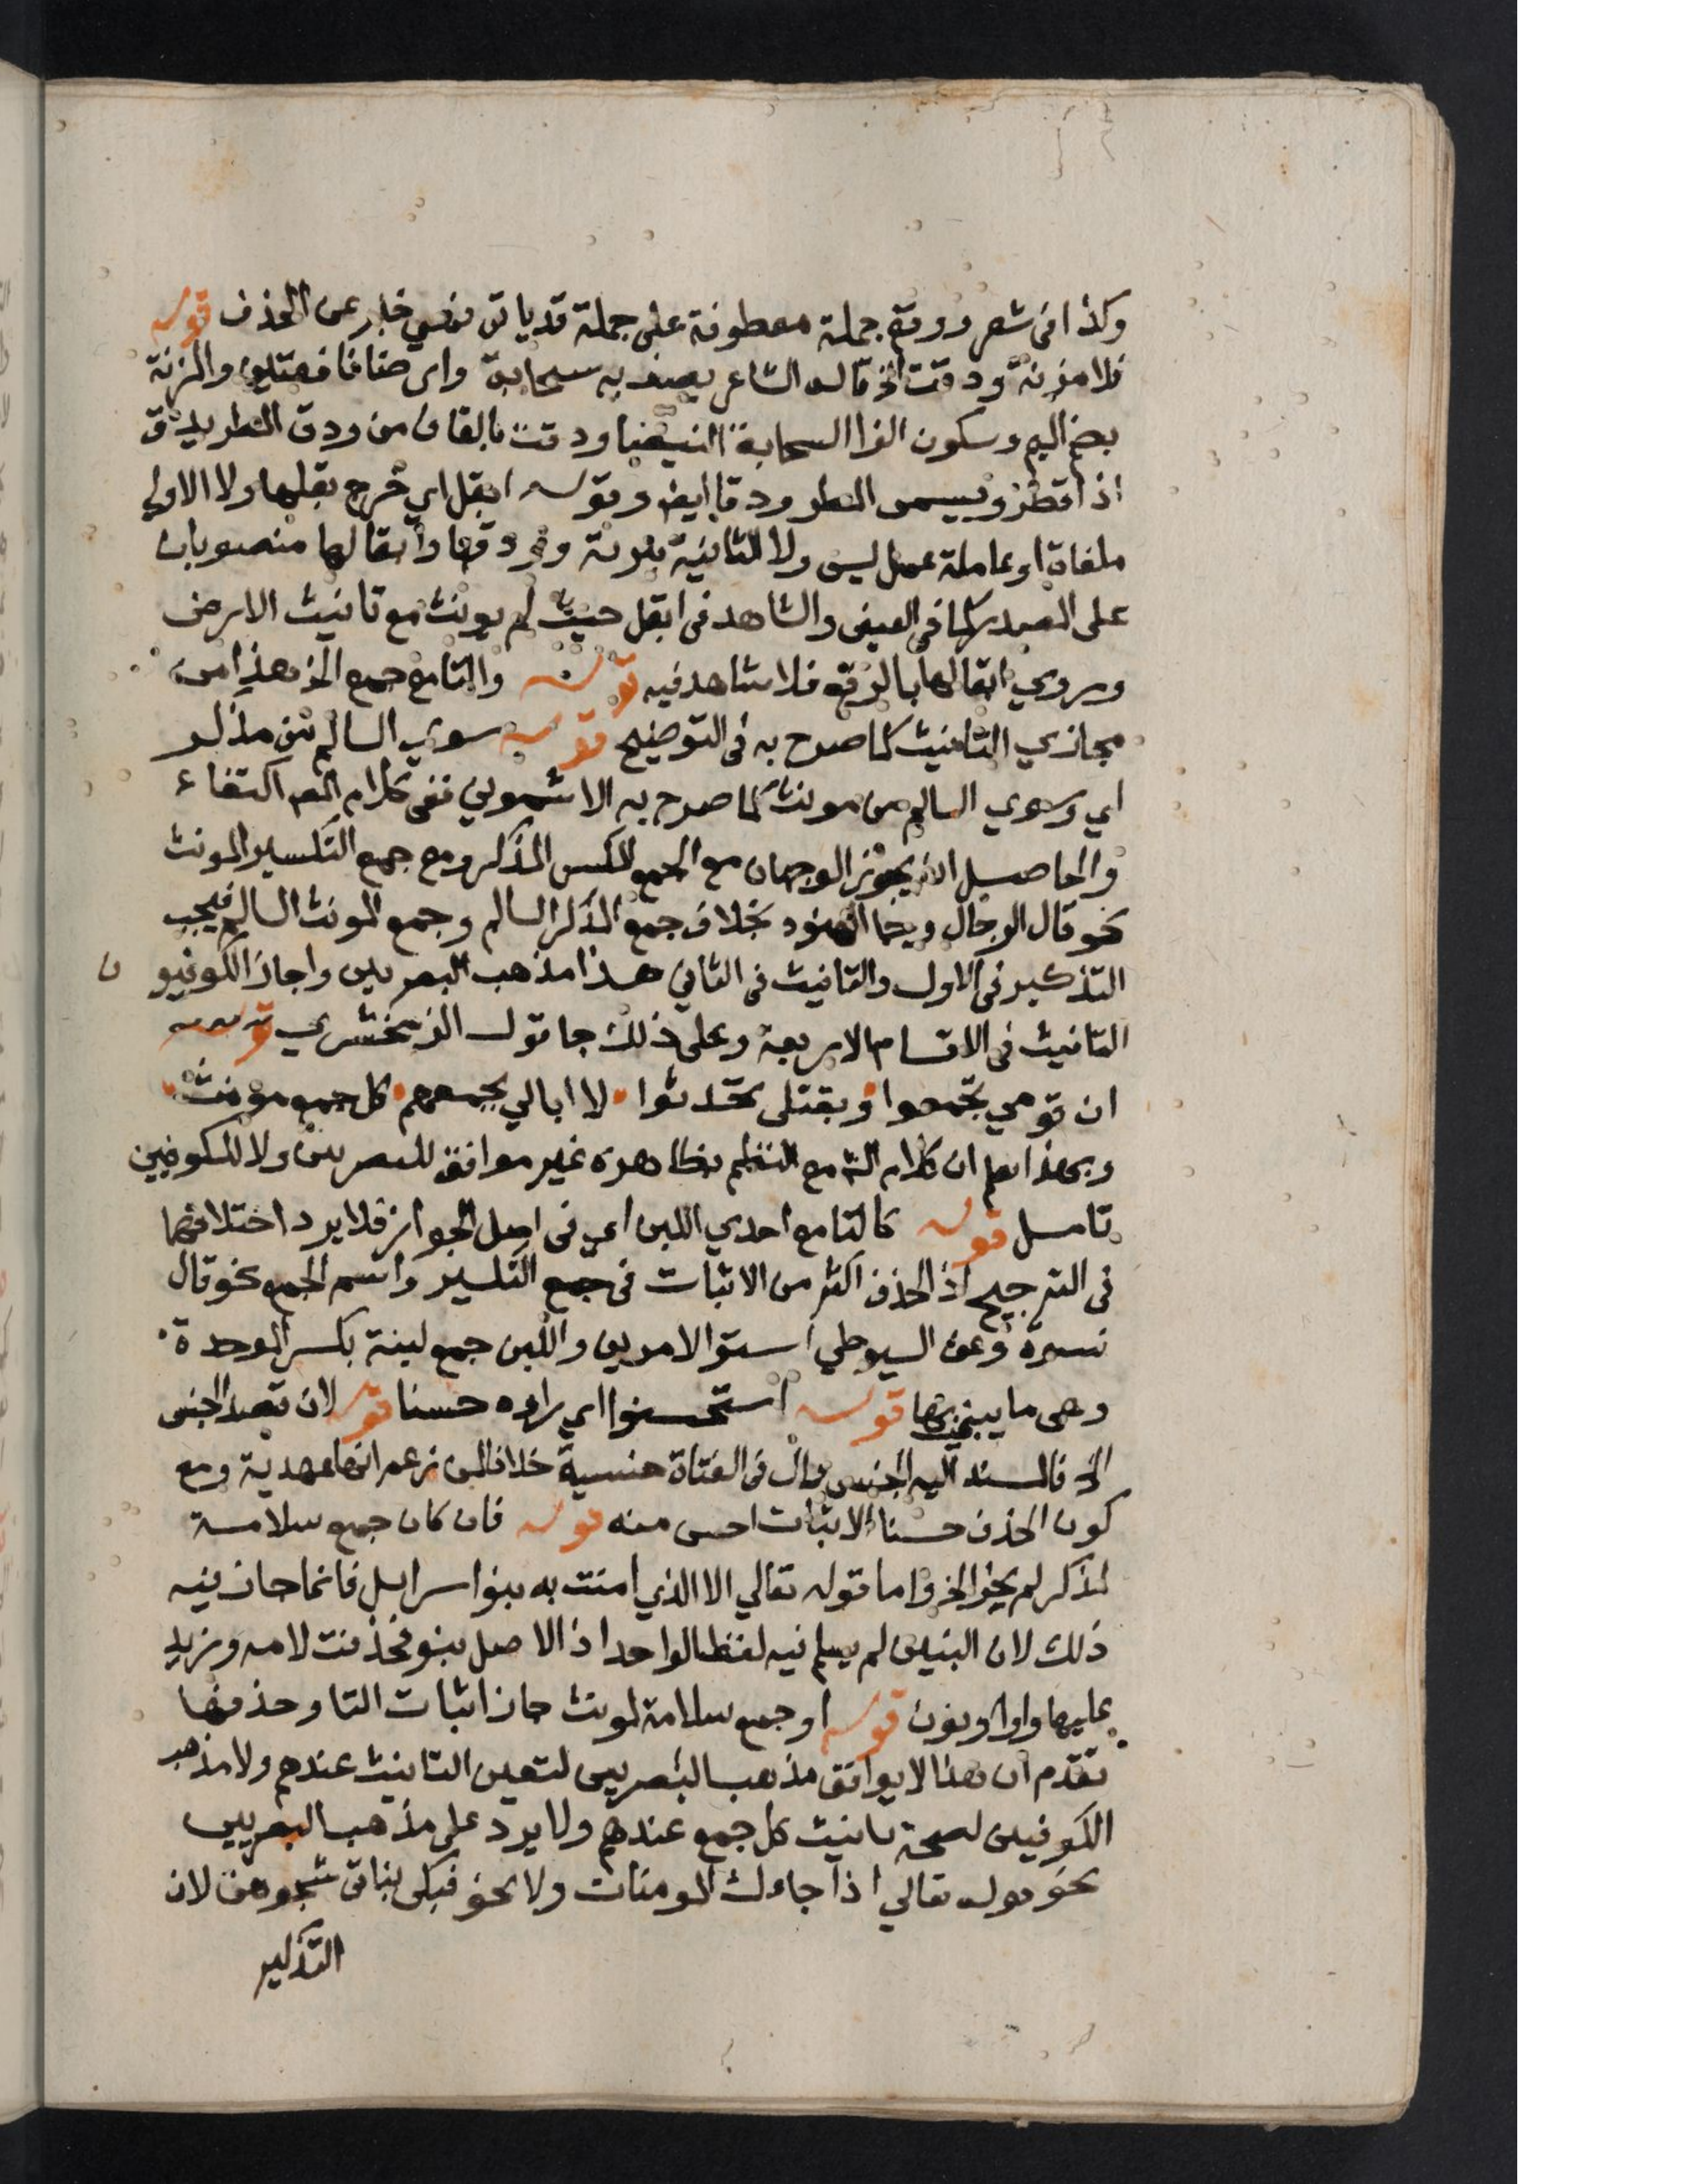 وكذا في شعر ووقع جملة معطوفة على جملة قد ياتي نفسي خبر عن الحذف قوله
فلا مزنة ودقت الخ قاله الشاعر يصف به سحابة وارضا نافعتين والمزنة
بضم الميم وسكون الزا السحابة البيضا ودقت بالقاف من ودق المطر يدق
اذا قطر ويسمى المطر ودقا ايض وقوله ابقل اي خرج بقلها ولا الاولى
ملغاة او عاملة عمل ليس ولا الثانية مبرئة وودقها وأبقالها منصوبان
على المصدر كما في العيني والشاهد في ابقل حيث لم يونث مع تانيث الارض
وروي ابقالها بالرفع فلا شاهد فيه قوله والتا مع جمع الخ هذا من
مجازي التانيث كما صرح به في التوضيح قوله سوي السالم من مذكر
اي وسوي السالم من مونث كما صرح به الاشموني ففي كلام المص اكتفاء
والحاصل انه يجوز الوجهان مع الجمع المكسر المذكر ومع جمع التكسير المونث
نحو قال الرجال وجا الهنود بخلاف جمع المذكر السالم وجمع المونث السالم فيجب
التذكير في الاول والتانيث في الثاني هذا مذهب البصريين واجاز الكوفيون
التانيث في الاقسام الاربعة وعلى ذلك جا قول الزمخشري قوله
ان قومي تجمعوا وبقتلي تحدثوا لا ابالي بجمعهم كل جمع مؤنث
وبهذا يعلم ان كلام الش مع النظم بظاهره غير موافق للبصريين ولا للكوفيين
تامل قوله كالتا مع احدي اللبن اي في اصل الجواز فلا يرد اختلافهما
في الترجيح اذ الحذف اكثر من الاثبات في جمع التكسير واسم الجمع نحو قال
نسوة وعن السيوطي استوا الامرين واللبن جمع لبنة بكسر الموحدة
وهي ما يبنى بها قوله استحسنوا اي راوه حسنا قوله لان قصد الجنس
الخ فالمسند اليه الجنس وال في الفتاة جنسية خلافا لمن زعم انها عهدية ومع
كون الحذف حسنا الاثبات احسن منه قوله فان كان جمع سلامة
لمذكر لم يجز الخ واما قوله تعالي الا الذي امنت به بنوا سرايل فانما جاز فيه
ذلك لان البنين لم يسلم فيه لفظ الواحد اذ الاصل بنو فحذفت لامه وزيد
عليها واو ونون قوله او جمع سلامة لمونث جاز اثبات التا وحذفها
تقدم ان هذا لا يوافق مذهب البصريين لتعين التانيث عندهم ولا مذهب
الكوفيين لصحة تانيث كل جمع عندهم ولا يرد على مذهب البصريين
نحو قوله تعالي اذا جاءك المومنات ولا نحو فبكى بناتي شجوهن لان
التذكير